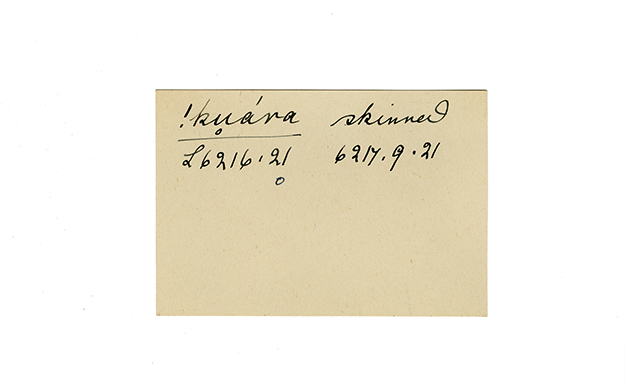 !kụára skinned
L6216.21 6217.9.21
o